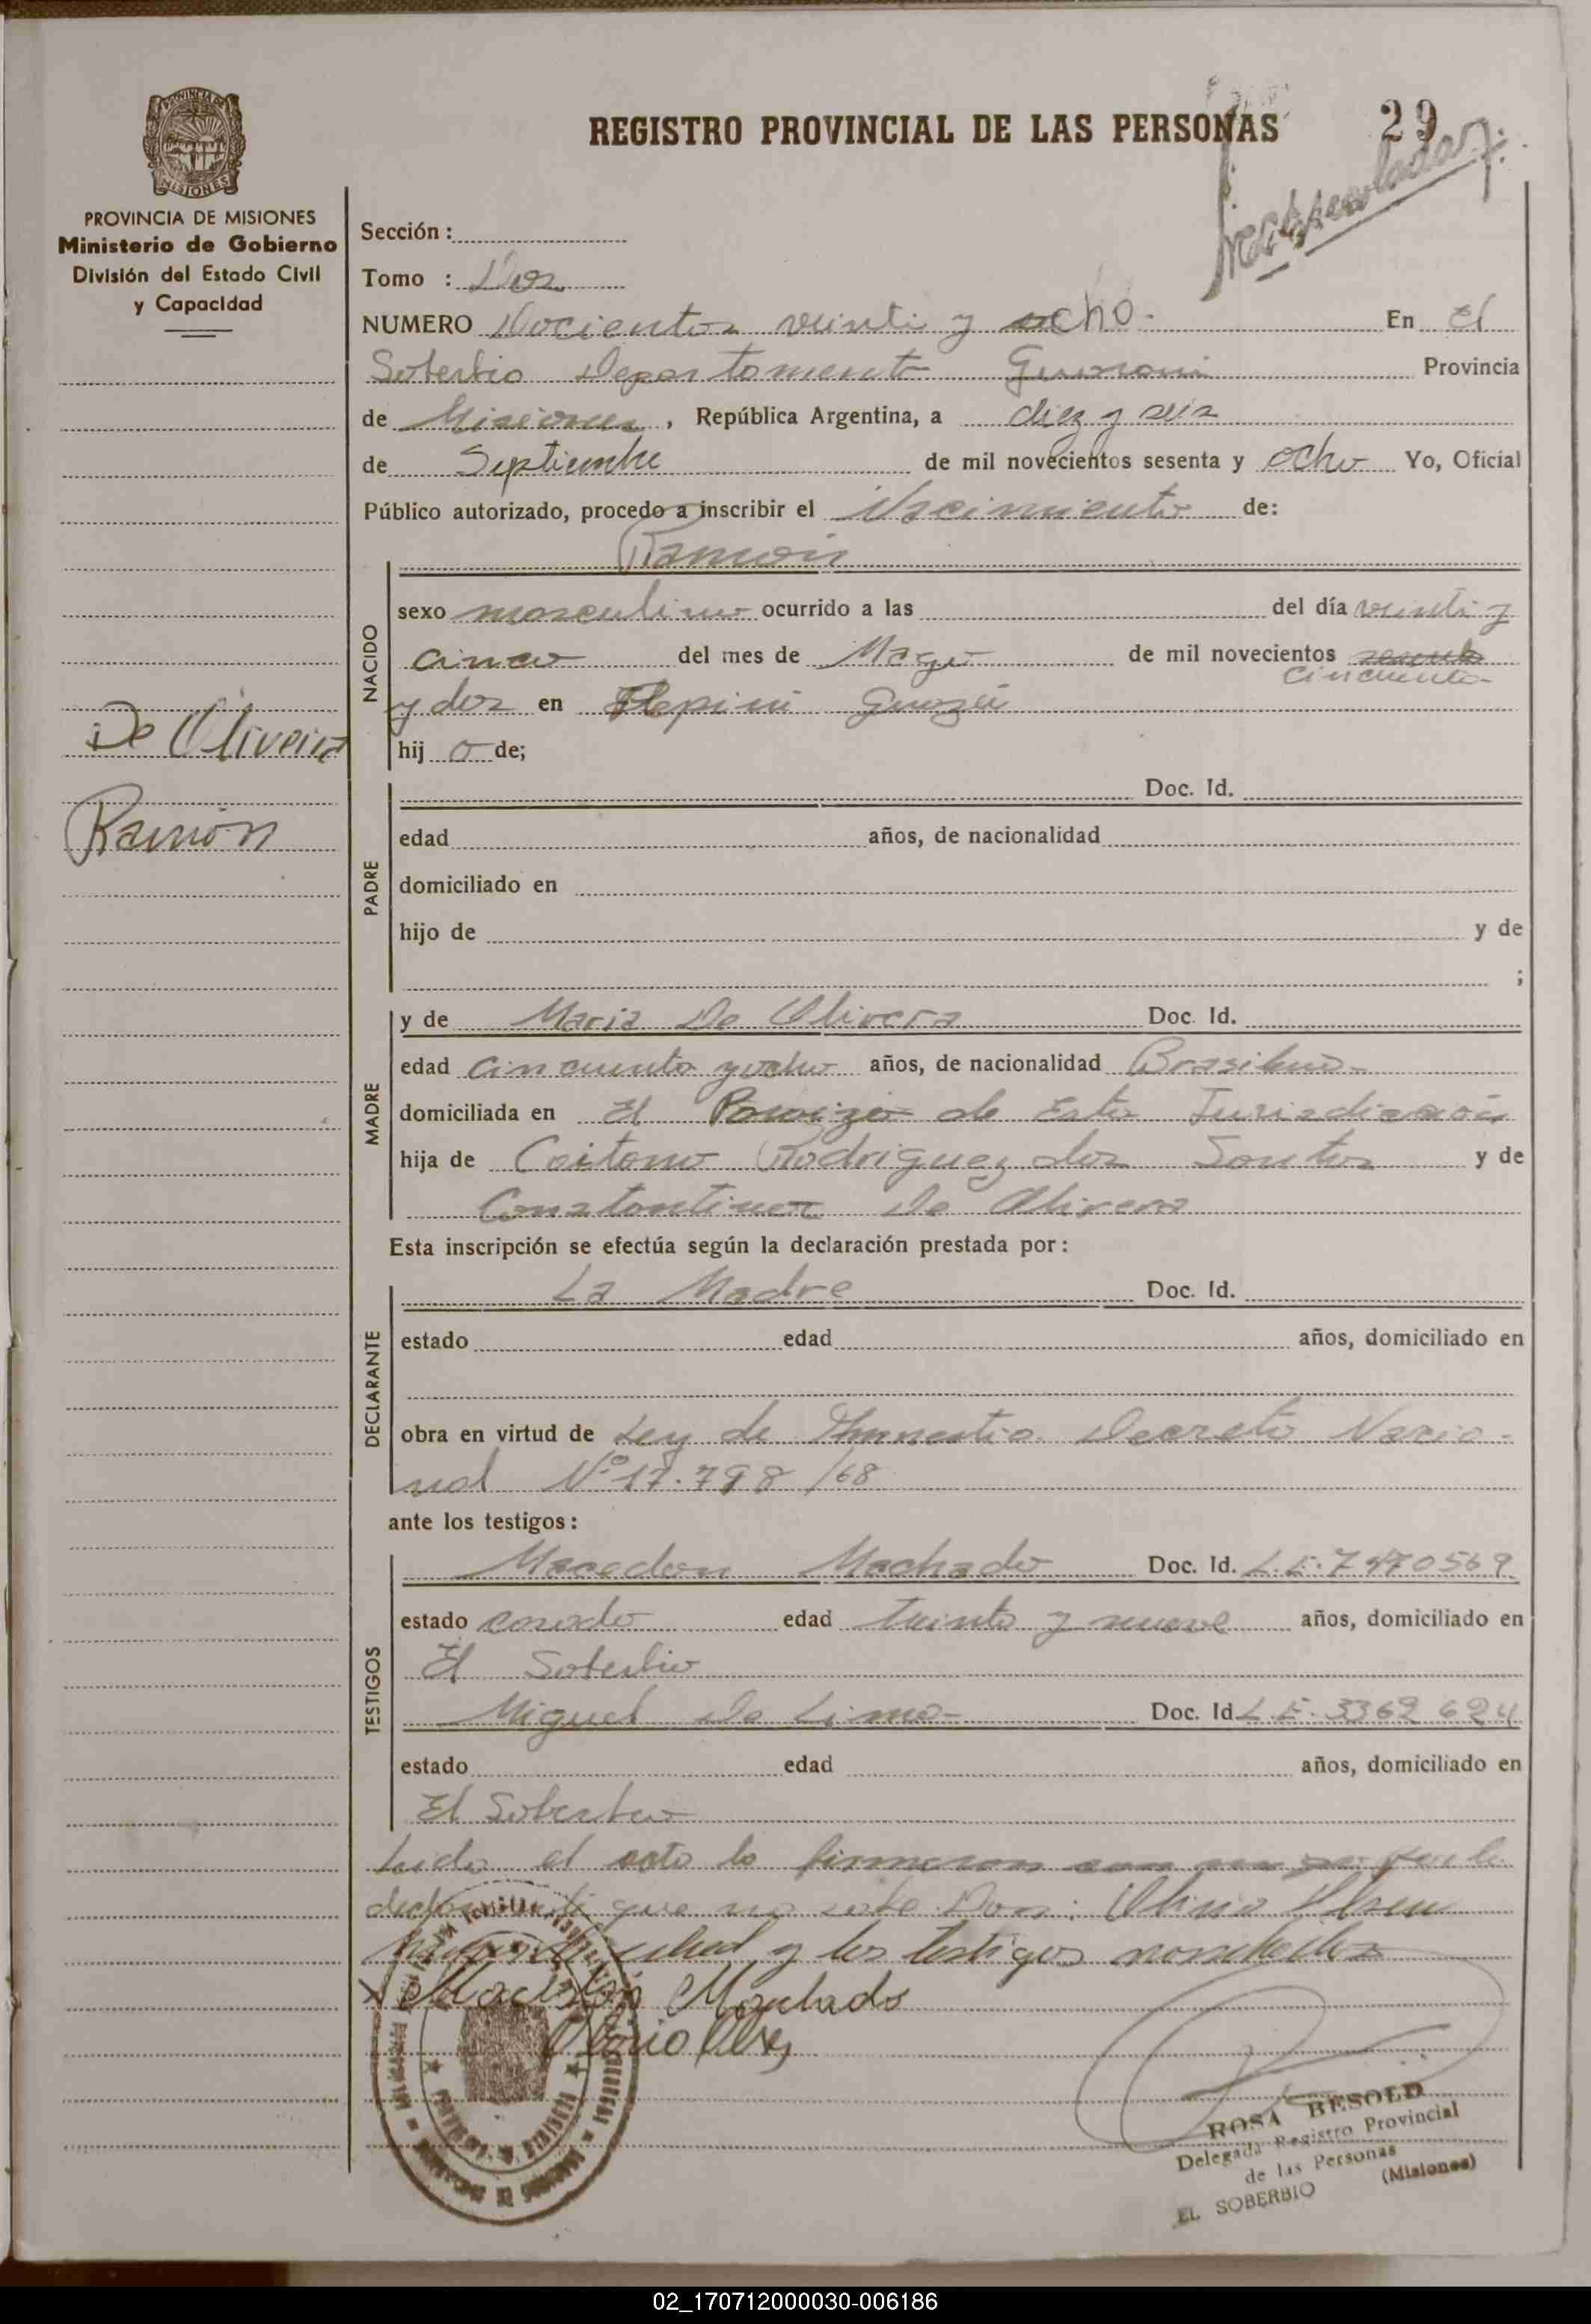 PROVINCIA DE MISIONES
Ministerio de Gobierno
División del Estado Civil
y Capacidad
De Oliveira
Ramón
REGISTRO PROVINCIAL DE LAS PERSONAS
29
Sección :
Tomo : Dos
NUMERO Docientos veinti y ocho. En El
Soberbio Departamento Guarani Provincia
de Misiones, República Argentina, a diez y seis
de Septiembre de mil novecientos sesenta y ocho Yo, Oficial
Público autorizado, procedo a inscribir el Nacimiento de:
Ramón
NACIDO
sexo masculino ocurrido a las del día veinti y
cinco del mes de Mayo de mil novecientos sesenta
cincuenta
y dos en Pepiri Guazú
hij o de;
PADRE
Doc. Id.
edad años, de nacionalidad
domiciliado en
hijo de y de
;
MADRE
y de Maria De Olivera Doc. Id.
edad cincuenta y ocho años, de nacionalidad Brasilera
domiciliada en El de Esta Jurisdicción
hija de Caitano Rodriguez dos Santos y de
Constantina De Olivera
Esta inscripción se efectúa según la declaración prestada por :
DECLARANTE
La Madre Doc. Id.
estado edad años, domiciliado en
obra en virtud de Ley de Amnestia Decreto Nacio-
nal Nº 17.798/68
ante los testigos :
TESTIGOS
Macedon Machado Doc. Id. L.E. 7470569
estado casado edad treinta y nueve años, domiciliado en
El Soberbio
Miguel De Lima Doc. Id L.E. 3362624
estado edad años, domiciliado en
El Soberbio
Leido el acta lo firmaron por la
que no sabe Don:
y los testigos nombrados
Machado
ROSA BESOLD
Delegada Registro Provincial
de las Personas
EL SOBERBIO (Misiones)
02_170712000030-006186